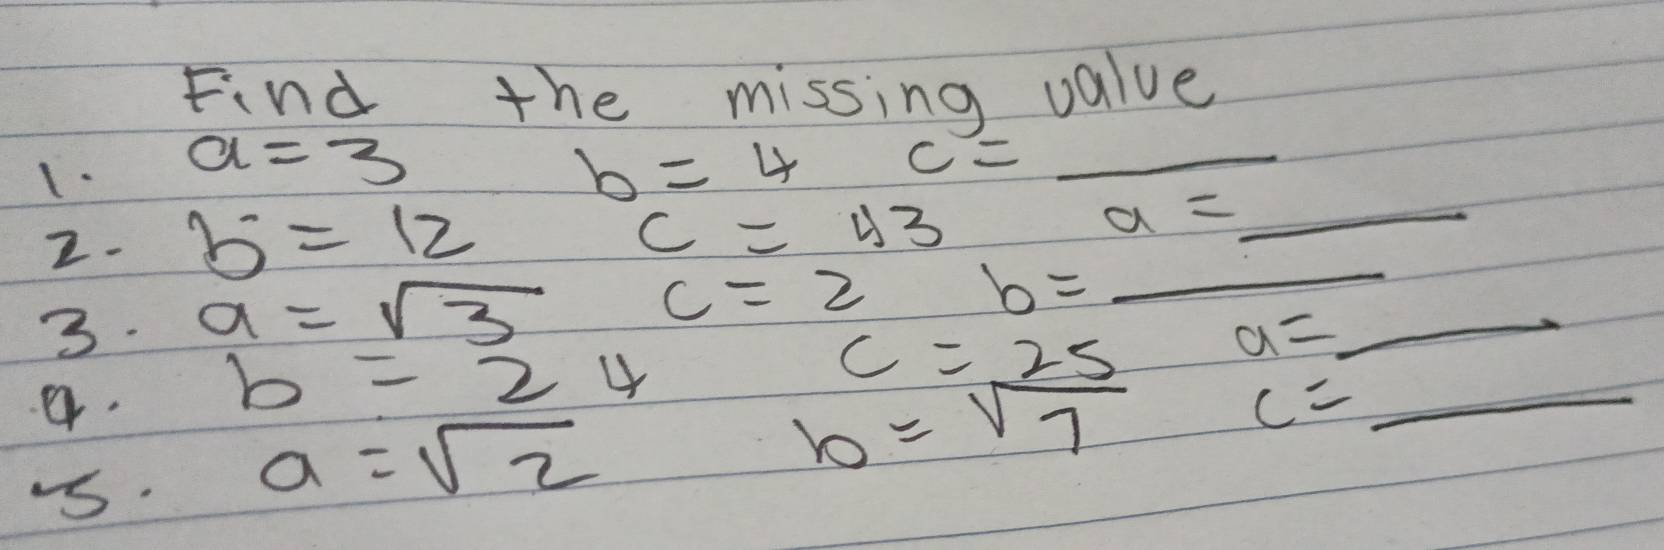 Find the missing value
1. a = 3 b = 4 c = ____
2. b = 12 c = 43 a = ____
3. a = √3 c = 2 b = ____
4. b = 24 c = 25 a = ____
5. a = √2 b = √7 c = ____